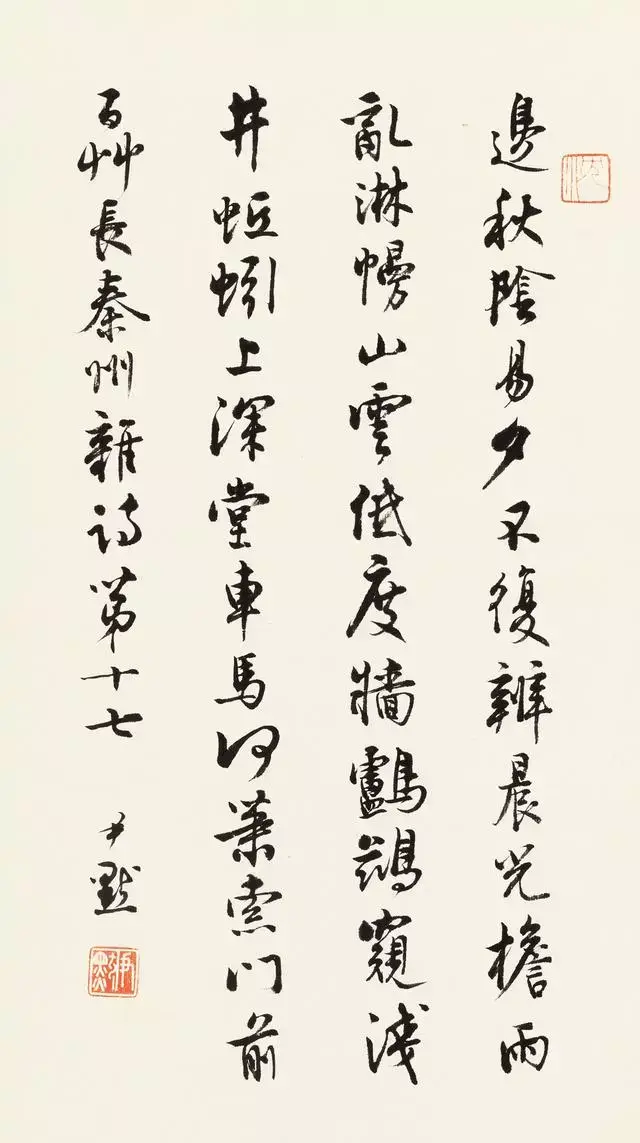 邊秋陰易夕不復辨晨光檐雨
亂淋幔山雲低度牆鸕鶿窺淺
井蚯蚓上深堂車馬何蕭索門前
百艸長秦州雜詩第十七
尹默